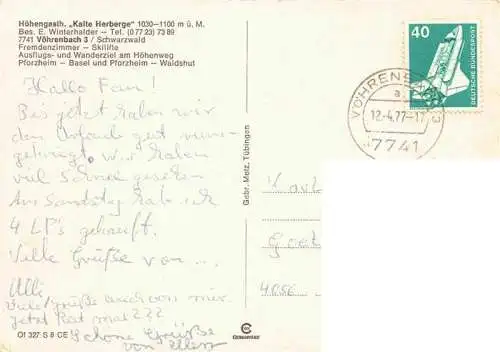 Höhengasth. „Kalte Herberge" 1030–1100 m ü. M.
Bes. E. Winterhalder – Tel. (0 77 23) 73 89
7741 Vöhrenbach 3 / Schwarzwald
Fremdenzimmer – Skilifte
Ausflugs- und Wanderziel am Höhenweg
Pforzheim – Basel und Pforzheim – Waldshut
Hallo Fan!
Bis jetzt haben wir
den Urlaub gut
Wir haben
viel Schnee gesehen
Am Samstag hab ich
4 LP's gekauft.
Viele Grüße von ...
Ulli
Viele Grüße auch von mir
jetzt Rest mal ???
Schöne Grüße
von
Gebr. Metz, Tübingen
40
DEUTSCHE BUNDESPOST
VÖHRENBACH 3
a
12.-4.77-17
7741
Karl
Goet
4050
O1 327 S 8 CE